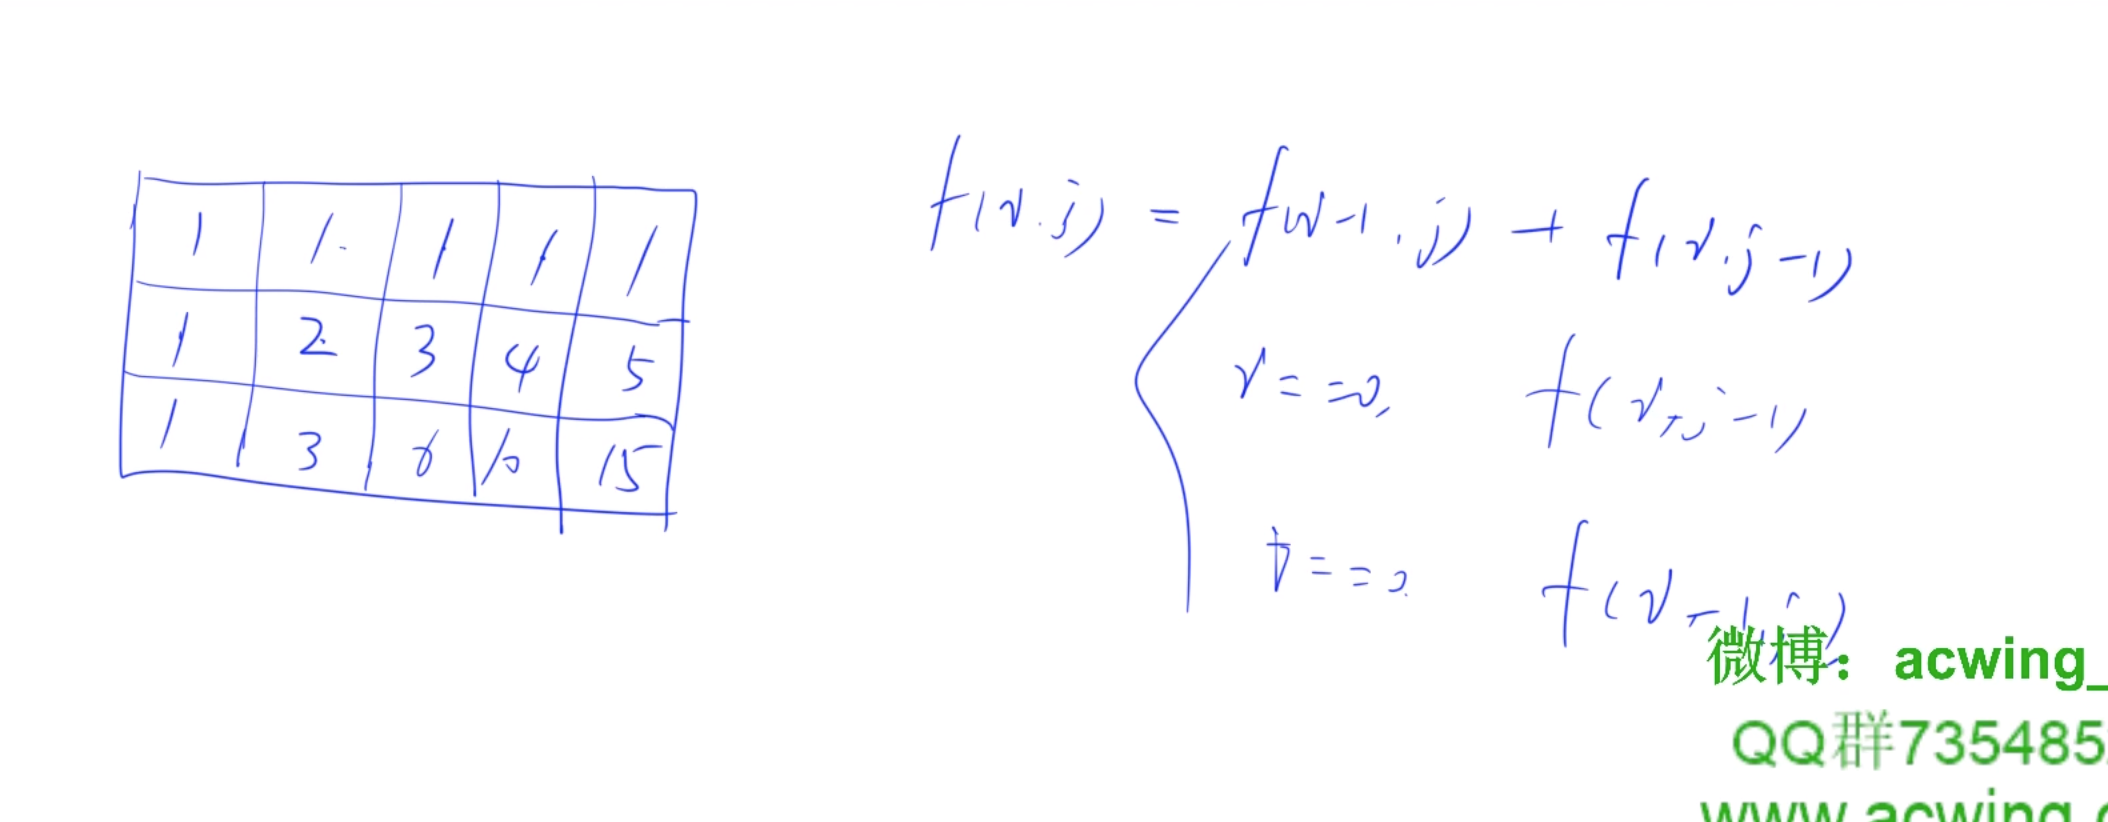 1 1 1 1 1
1 2 3 4 5
1 3 6 10 15
f(i.j) = f(i-1.j) + f(i.j-1)
i==0, f(i,j-1)
j==0. f(i-1,j)
微博：acwing_
QQ群735485
www.acwing.c